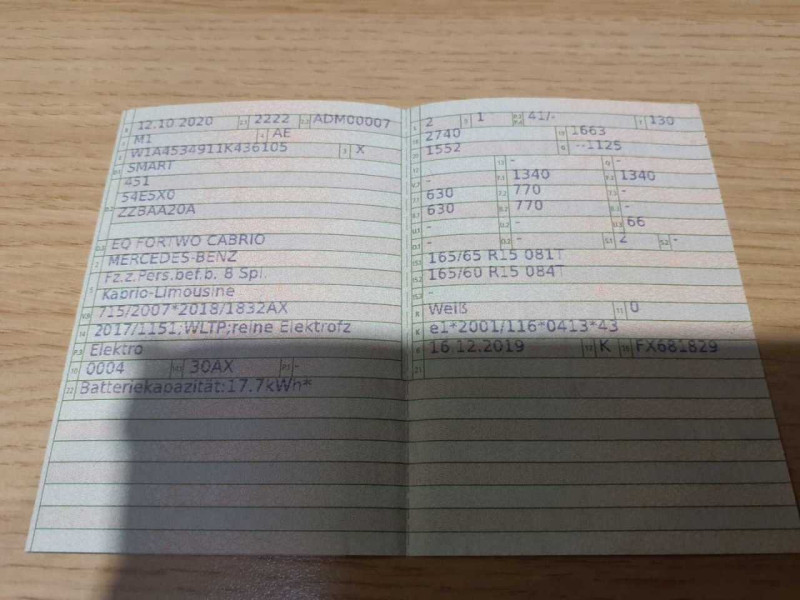 12.10.2020 2222 ADM00007
M1 AE
W1A4534911K436105 X
SMART
451
54E5X0
ZZBAA20A
EQ FORTWO CABRIO
MERCEDES-BENZ
Fz.z.Pers.bef.b. 8 Spl.
Kabrio-Limousine
715/2007*2018/1832AX
2017/1151;WLTP;reine Elektrofz
Elektro
0004 30AX -
Batteriekapazität:17.7kWh*
2 1 41/- 130
2740 1663
1552 --1125
- -
- 1340 1340
630 770 -
630 770 -
- - 66
- - 2 -
165/65 R15 081T
165/60 R15 084T
-
Weiß 0
e1*2001/116*0413*43
16.12.2019 K FX681829